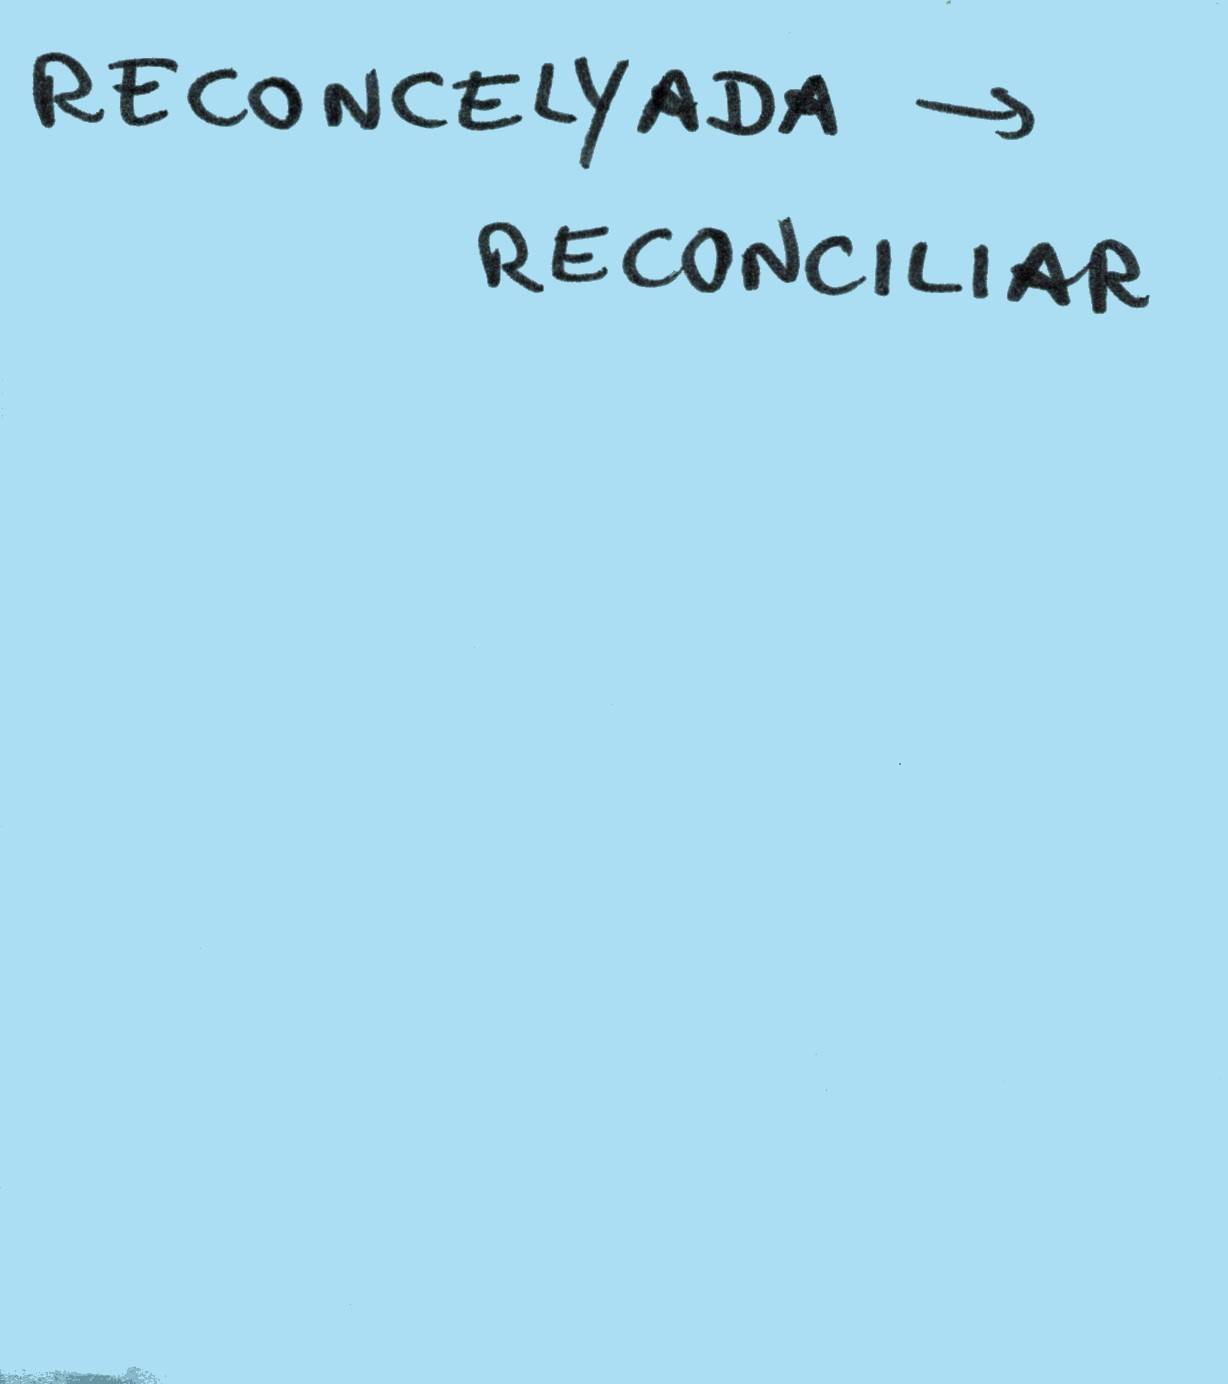 RECONCELYADA →
RECONCILIAR